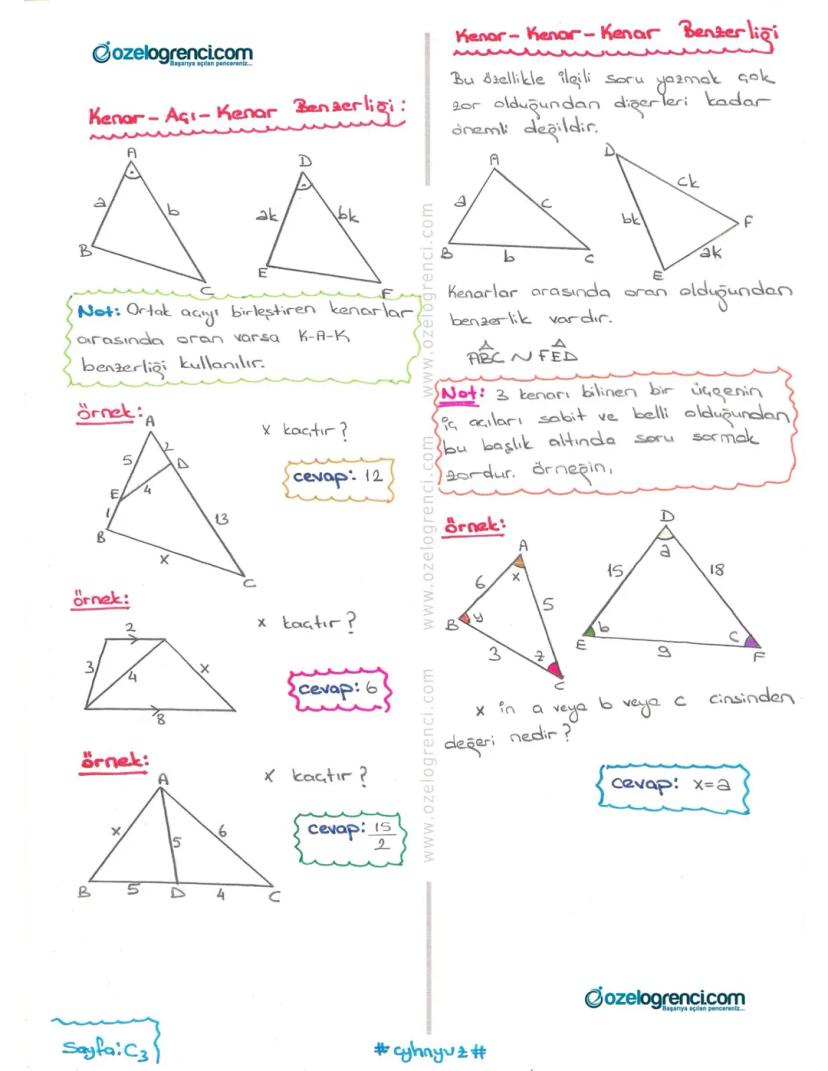 ozelogrenci.com
Başarıya açılan pencereniz...
Kenar-Açı-Kenar Benzerliği:
A
a
b
B
C
D
ak
bk
E
F
Not: Ortak açıyı birleştiren kenarlar
arasında oran varsa K-A-K
benzerliği kullanılır.
örnek:
x kaçtır?
cevap: 12
A
2
5
D
E
4
1
13
B
x
C
örnek:
x kaçtır?
cevap: 6
2
3
4
x
8
örnek:
x kaçtır?
cevap: 15/2
A
x
5
6
B
5
D
4
C
Sayfa:C3
www.ozelogrenci.com www.ozelogrenci.com www.ozelogrenci.com
Kenar-Kenar-Kenar Benzerliği
Bu özellikle ilgili soru yazmak çok
zor olduğundan diğerleri kadar
önemli değildir.
A
a
c
B
b
C
D
ck
bk
F
ak
E
Kenarlar arasında oran olduğundan
benzerlik vardır.
ABC ~ FED
Not: 3 kenarı bilinen bir üçgenin
iç açıları sabit ve belli olduğundan
bu başlık altında soru sormak
zordur. örneğin,
örnek:
A
6
x
5
B
y
3
z
C
D
a
15
18
b
E
9
c
F
x in a veya b veya c cinsinden
değeri nedir?
cevap: x=a
ozelogrenci.com
Başarıya açılan pencereniz...
#cyhnyvz#